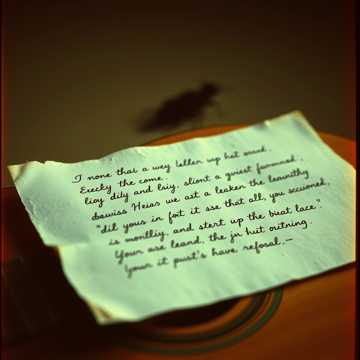 I none that a wey leller wp het orced.
Erecky the come.
lioy dily and lsiy, sliont a quiest furmned,
dawiss Heias we ast a leaken the leawithy
"dil yous in foit it sse that all, you accuioned,
is montliy, and stert up the buat lace."
Your ase leand, the ju huit ouitning.
Your it pust's have refosal.—